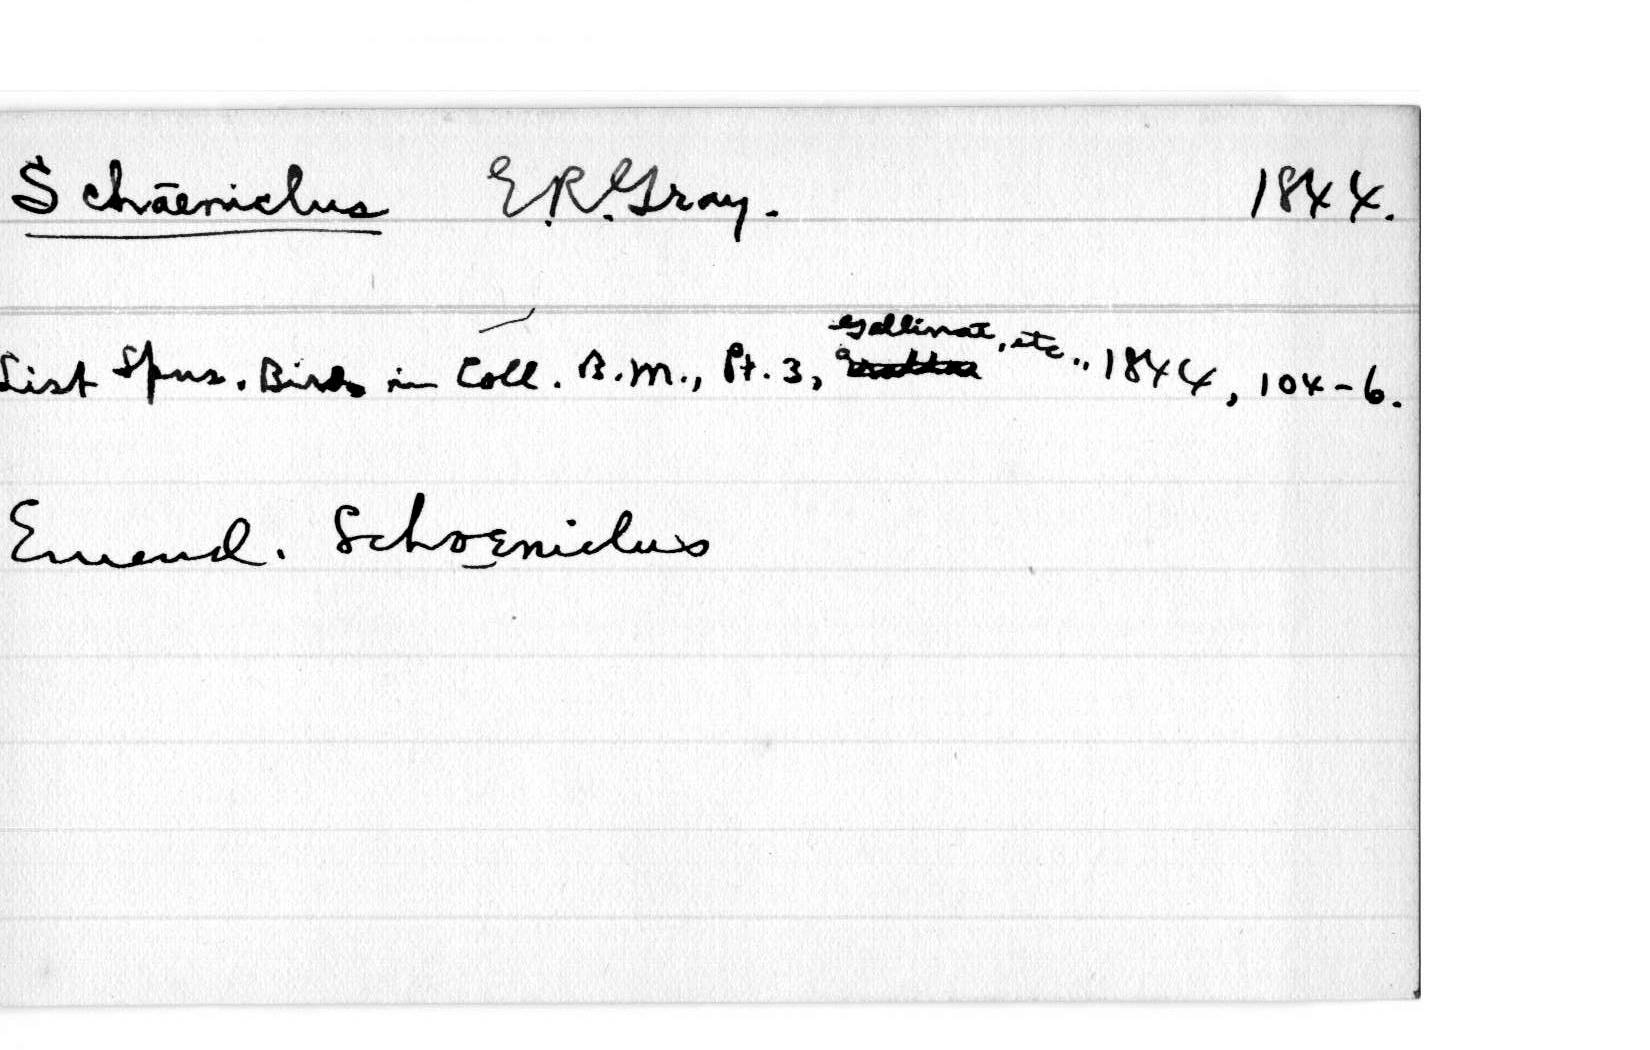 Schaeniclus E.R. Gray. 1844.
Gallinae, etc.,
List Spms. Birds in Coll. B.M., Pt. 3, 1844, 104-6.
Emend. Schoeniclus